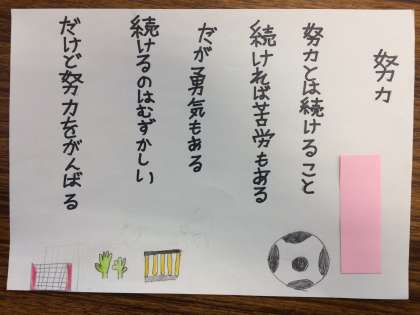 努力
努力とは続けること
続ければ苦労もある
だが勇気もある
続けるのはむずかしい
だけど努力をがんばる